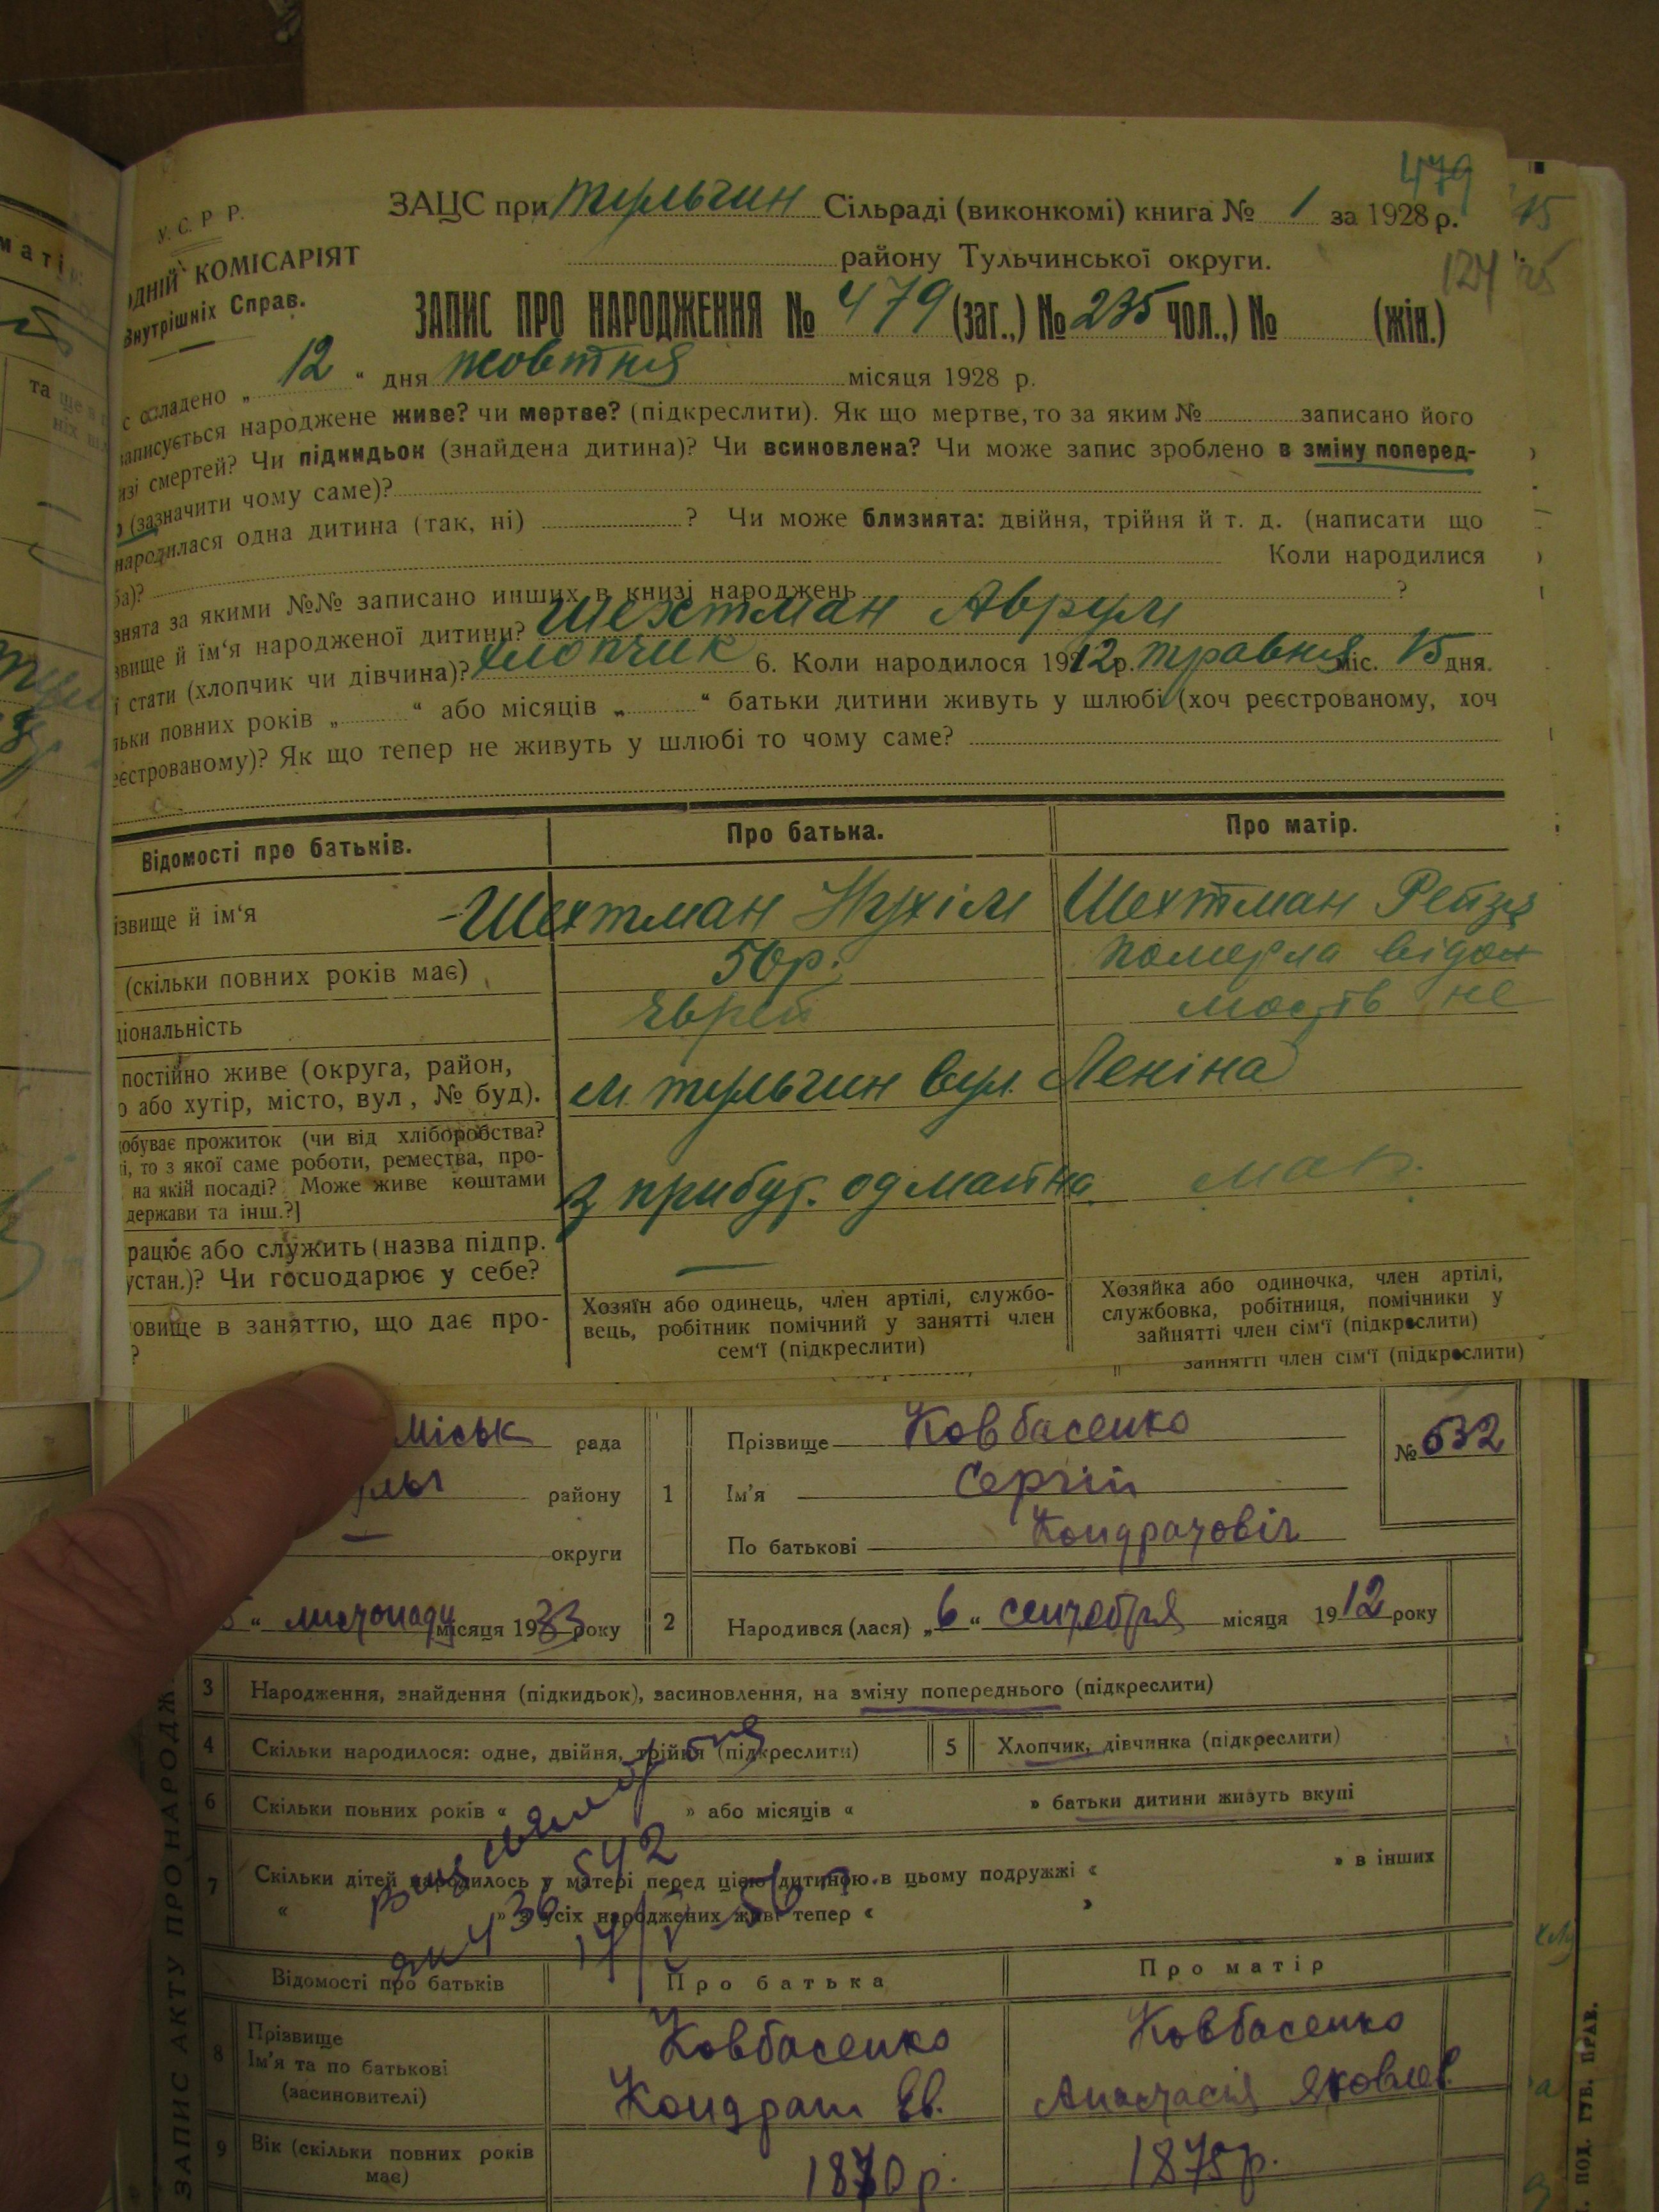 479
У. С. Р. Р.
ЗАЦС при Тульчин Сільраді (виконкомі) книга № 1 за 1928 р.
15
ОДНІЙ КОМІСАРІЯТ
району Тульчинської округи.
Внутрішніх Справ.
ЗАПИС ПРО НАРОДЖЕННЯ № 479 (заг.,) № 235 чол.,) № (жін.)
с складено „ 12 “ дня жовтня місяця 1928 р.
записується народжене живе? чи мертве? (підкреслити). Як що мертве, то за яким № записано його
изі смертей? Чи підкидьок (знайдена дитина)? Чи всиновлена? Чи може запис зроблено в зміну поперед-
о (зазначити чому саме)?
народилася одна дитина (так, ні) ? Чи може близнята: двійня, трійня й т. д. (написати що
ба)? Коли народилися
знята за якими №№ записано инших в книзі народжень ?
звище й їм‘я народженої дитини? Шехтман Аврум
ї стати (хлопчик чи дівчина)? хлопчик 6. Коли народилося 1912 р. травня міс. 15 дня.
льки повних років „ “ або місяців „ “ батьки дитини живуть у шлюбі (хоч реєстрованому, хоч
еєстрованому)? Як що тепер не живуть у шлюбі то чому саме?
Відомості про батьків. Про батька. Про матір.
ізвище й ім‘я Шехтман Нухім Шехтман Рейзя
(скільки повних років має) 50 р. померла відом
ціональність Єврей мостів не
постійно живе (округа, район,
о або хутір, місто, вул, № буд). м. Тульчин вул. Леніна
обуває прожиток (чи від хліборобства?
і, то з якої саме роботи, ремества, про-
на якій посаді? Може живе коштами
держави та інш.?] з прибут. од майна мап.
рацює або служить (назва підпр.
устан.)? Чи господарює у себе?
овище в заняттю, що дає про-
?
Хозяїн або одинець, член артілі, службо-
вець, робітник помічний у занятті член
сем‘ї (підкреслити)
Хозяйка або одиночка, член артілі,
службовка, робітниця, помічники у
зайнятті член сім‘ї (підкреслити)
зайнятті член сім‘ї (підкреслити)
Міськ рада
района Прізвище Ковбасенко № 632
ульч району 1 Ім’я Сергій
округи По батькові Кондратовіч
“ листопаду місяця 1933 року 2 Народився (лася) „6“ сентебря місяця 1912 року
ЗАПИС АКТУ ПРО НАРОДЖ.
3 Народження, знайдення (підкидьок), засиновлення, на зміну попереднього (підкреслити)
4 Скільки народилося: одне, двійня, трійня (підкреслити) 5 Хлопчик, дівчинка (підкреслити)
6 Скільки повних років « » або місяців « » батьки дитини живуть вкупі
7 Скільки дітей народилось у матері перед цією дитиною в цьому подружжі « » в інших
« » з усіх народжених живі тепер « »
Відомості про батьків Про батька Про матір
8 Прізвище
Ім’я та по батькові
(засиновителі)
Ковбасенко
Кондрат Єв.
Ковбасенко
Анастасія Яковлев.
9 Вік (скільки повних років
має) 1870 р. 1875 р.
ПОД. ГУБ. ПРАВ.